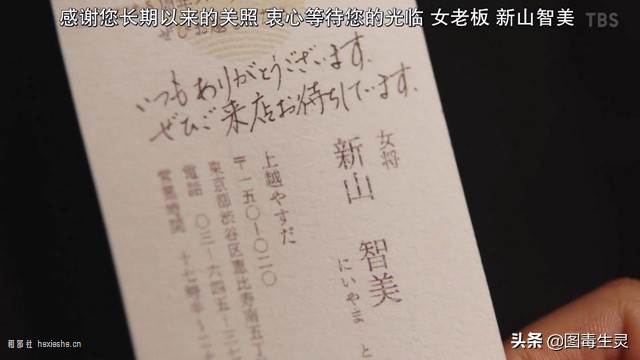 感谢您长期以来的关照 衷心等待您的光临 女老板 新山智美
TBS
いつもありがとうございます.
ぜひご来店お待ちしています.
女将
新山 智美
にいやま と
上越やすだ
〒一五〇-〇〇二〇
東京都渋谷区恵比寿南五丁
電話 〇三-六四五
営業時間 十七時半～二
相部社 hexieshe.cn
头条 @图毒生灵